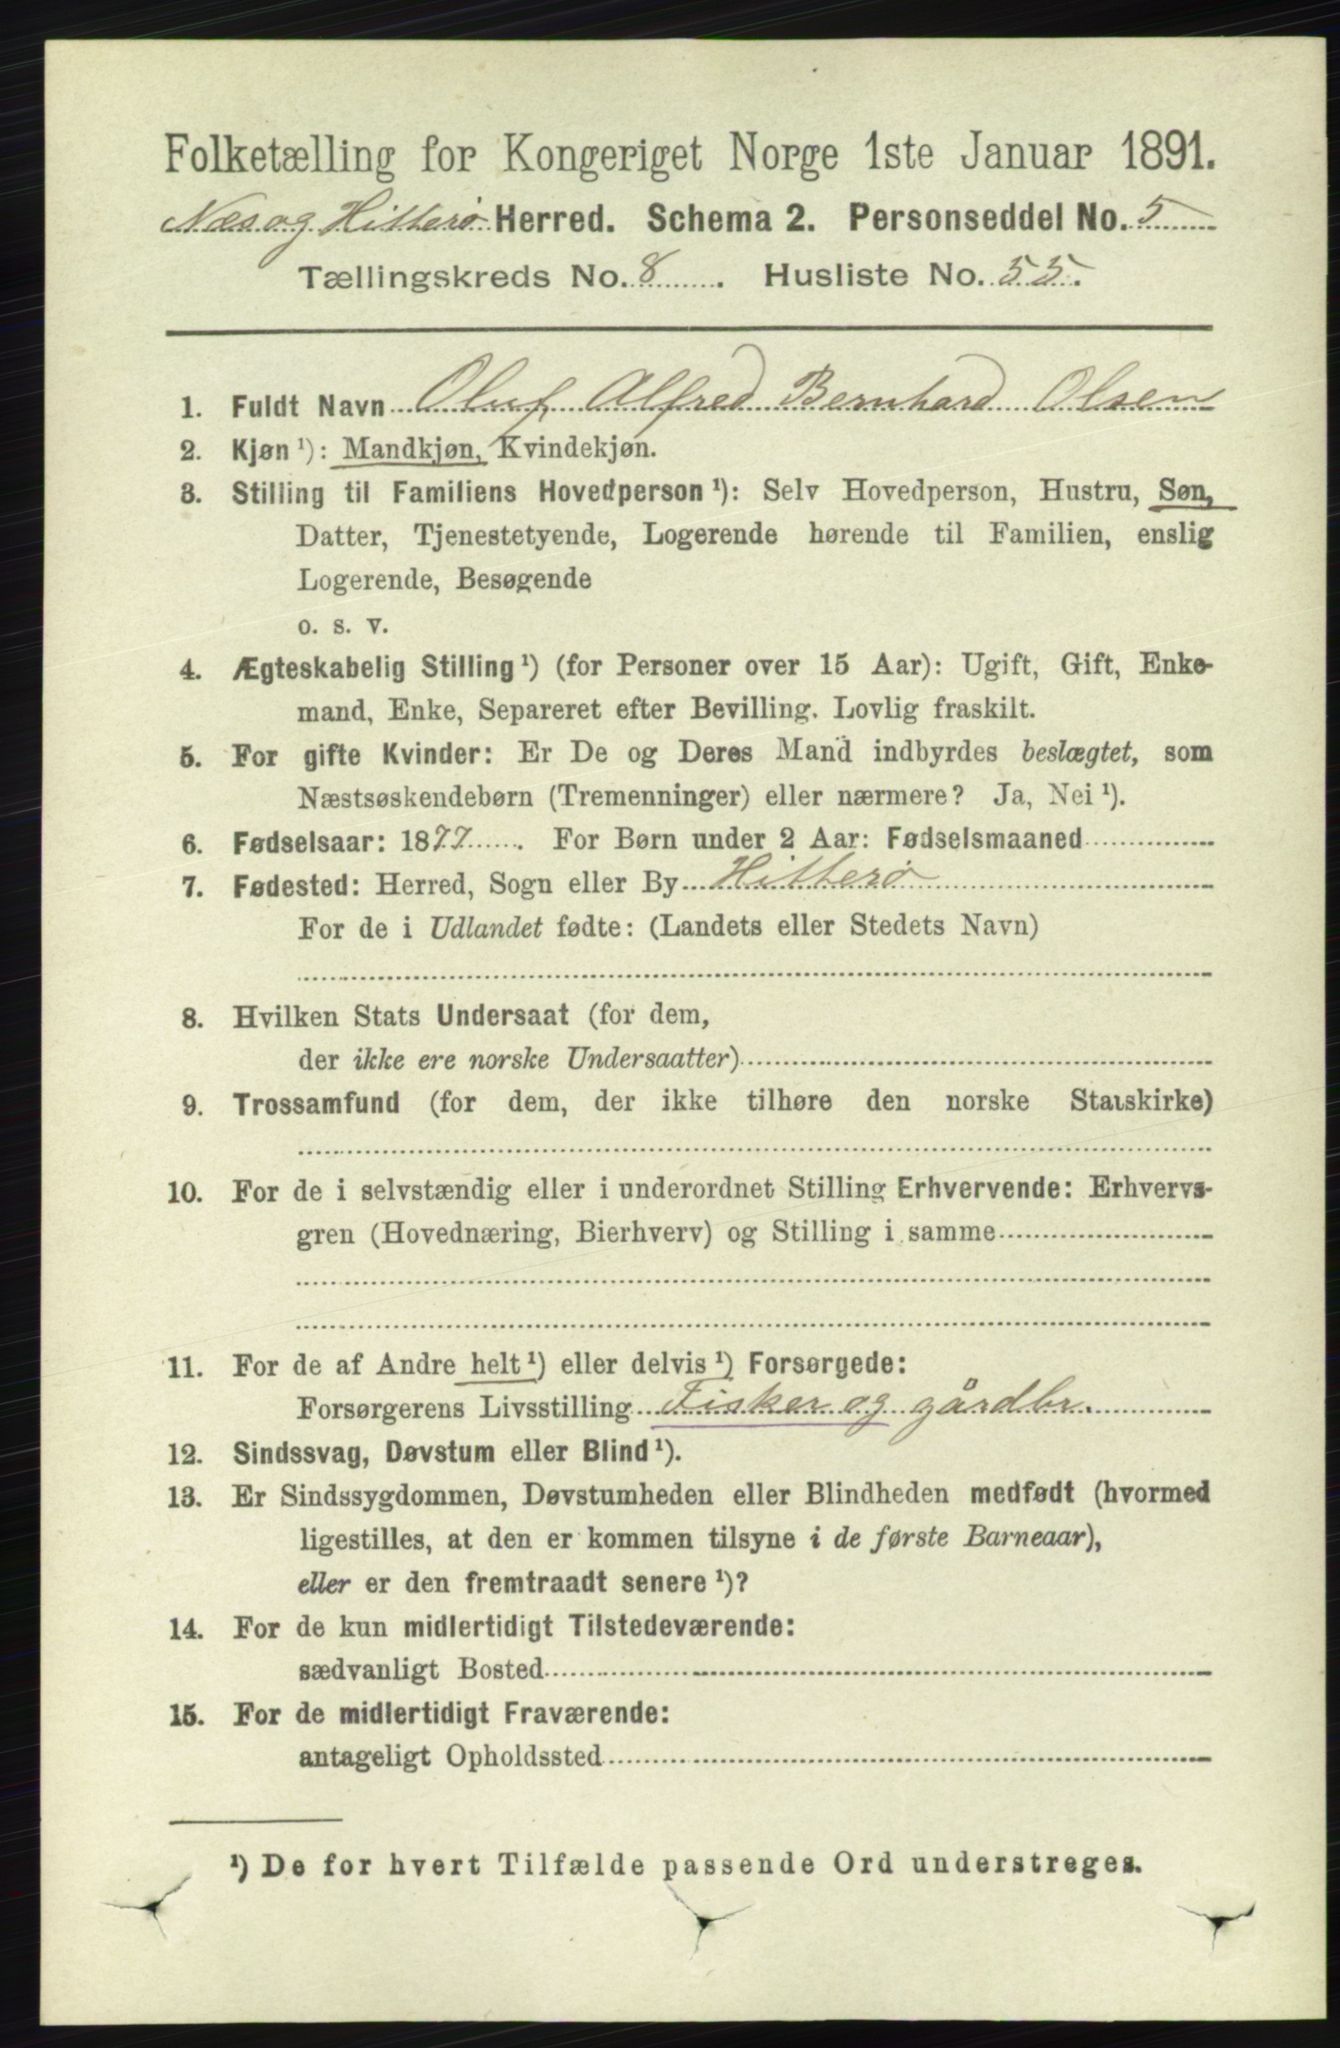 Folketælling for Kongeriget Norge 1ste Januar 1891.
Næs og Hitterø Herred. Schema 2. Personseddel No. 5
Tællingskreds No. 8. Husliste No. 55.
1. Fuldt Navn Oluf Alfred Bernhard Olsen
2. Kjøn ¹): Mandkjøn, Kvindekjøn.
3. Stilling til Familiens Hovedperson ¹): Selv Hovedperson, Hustru, Søn,
Datter, Tjenestetyende, Logerende hørende til Familien, enslig
Logerende, Besøgende
o. s. v.
4. Ægteskabelig Stilling ¹) (for Personer over 15 Aar): Ugift, Gift, Enke-
mand, Enke, Separeret efter Bevilling. Lovlig fraskilt.
5. For gifte Kvinder: Er De og Deres Mand indbyrdes beslægtet, som
Næstsøskendebørn (Tremenninger) eller nærmere? Ja, Nei ¹).
6. Fødselsaar: 1877. For Børn under 2 Aar: Fødselsmaaned
7. Fødested: Herred, Sogn eller By Hitterø
For de i Udlandet fødte: (Landets eller Stedets Navn)
8. Hvilken Stats Undersaat (for dem,
der ikke ere norske Undersaatter)
9. Trossamfund (for dem, der ikke tilhøre den norske Statskirke)
10. For de i selvstændig eller i underordnet Stilling Erhvervende: Erhvervs-
gren (Hovednæring, Bierhverv) og Stilling i samme
11. For de af Andre helt ¹) eller delvis ¹) Forsørgede:
Forsørgerens Livsstilling Fisker og gårdbr.
12. Sindssvag, Døvstum eller Blind ¹).
13. Er Sindssygdommen, Døvstumheden eller Blindheden medfødt (hvormed
ligestilles, at den er kommen tilsyne i de første Barneaar),
eller er den fremtraadt senere ¹)?
14. For de kun midlertidigt Tilstedeværende:
sædvanligt Bosted
15. For de midlertidigt Fraværende:
antageligt Opholdssted
¹) De for hvert Tilfælde passende Ord understreges.